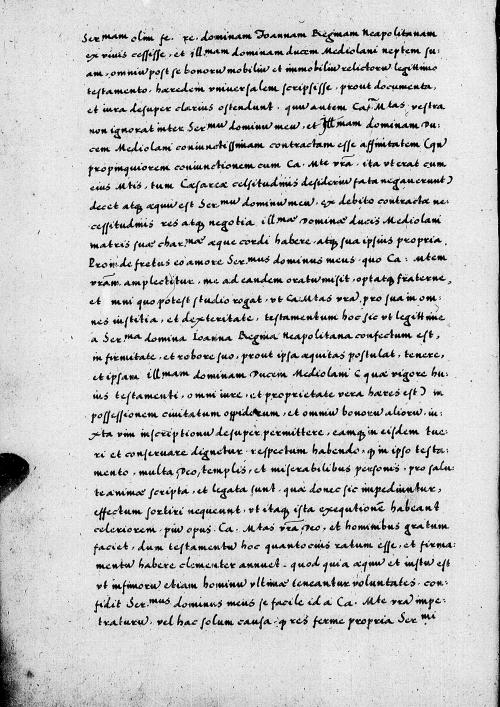 Ser.mam olim fe. re. dominam Joannam Reginam Neapolitanam
ex vivis cessisse, et ill.mam dominam ducem Mediolani neptem su-
am, omniū post se bonorū mobiliū et immobiliū relictorū legittimo
testamento, hæredem vniuersalem scripsisse, prout documenta,
et iura desuper clarius ostendunt. quū autem Ca. Mtas, vestra
non ignorat inter Ser.mū dominū meū, et Ill.mam dominam Du-
cem Mediolani coniunctissimam contractam esse affinitatem (qū
propinquiorem coniunctionem cum Ca. Mte vrā. ita vt erat cum
eius Mtis, tum Cæsareæ celsitudinis desideriū fata negauerunt)
decet atq̃ æquū est Ser.mū dominū meū, ex debito contractæ ne-
cessitudinis res atq̃ negotia ill.mæ Dominæ ducis Mediolani
matris suæ char.mæ æque cordi habere, atq̃ sua ipsius propria.
Proinde fretus eo amore Ser.mus dominus meus quo Ca. Mtem
vrām amplectitur, me ad eandem oratū misit, optatq̃ fraterne,
et omni quo potest studio rogat, vt Ca. Mtas vrā, pro sua in om-
nes iustitia, et dexteritate, testamentum hoc sic vt legittime
a Ser.ma domina Ioanna Regina Neapolitana confectum est,
in firmitate, et robore suo, prout ipsa æquitas postulat, tenere,
et ipsam ill.mam dominam Ducem Mediolani (quæ vigore hu-
ius testamenti, omni iure, et proprietate vera hæres est) in
possessionem ciuitatum oppidorum, et omniū bonorū aliorū, iu-
xta vim inscriptionū desuper permittere, eamq̃ in eisdem tue-
ri et conseruare dignetur. respectum habendo, q in ipso testa-
mento, multa Deo, templis, et miserabilibus personis, pro salu-
te animæ scripta, et legata sunt. quæ donec sic impediuntur,
effectum sortiri nequeunt. vt itaq̃ ista exequtionē habeant
celeriorem. piū opus. Ca. Mtas vrā, Deo, et hominibus gratum
faciet, dum testamentū hoc quantocius ratum esse, et firma-
mentū habere clementer annuet. quod quia æquū et iustū est
vt infimorū etiam hominū vltimæ teneantur voluntates. con-
fidit Ser.mus dominus meus se facile id a Ca. Mte vrā impe-
traturū. vel hac solum causa. q res ferme propria Ser.mi